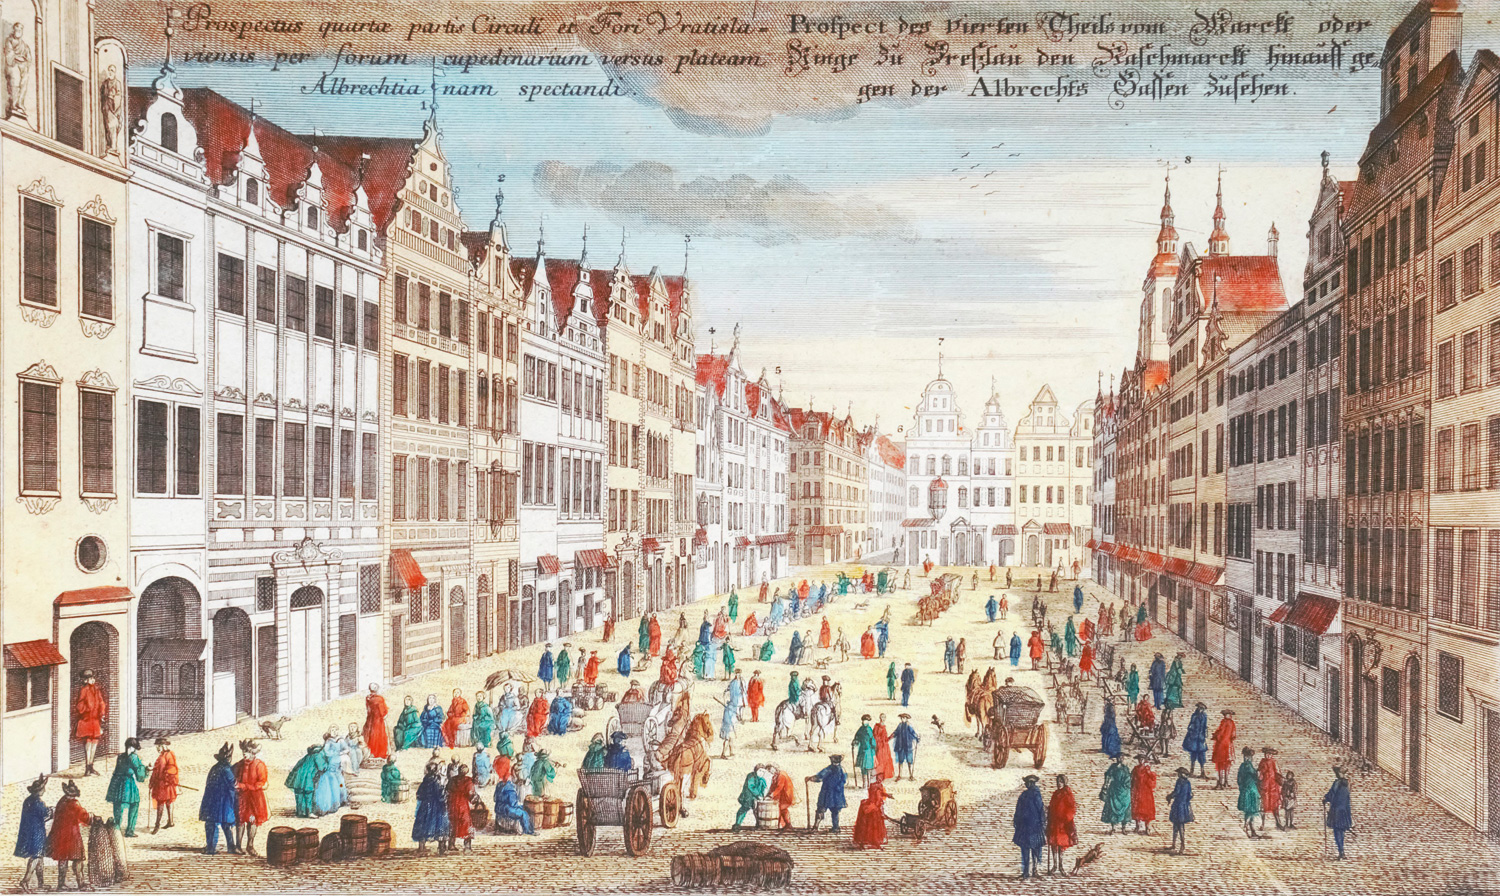 Prospectus quartæ partis Circuli et Fori Vratisla=
viensis per forum cupedinarium versus plateam
Albrechtianam spectandi.
Prospect des vierten Theils vom Marckt oder
Ringe zu Breßlau den Naschmarckt hinauff ge
gen der Albrechts Gassen zusehen.
1
2
3
4
5
6
7
8